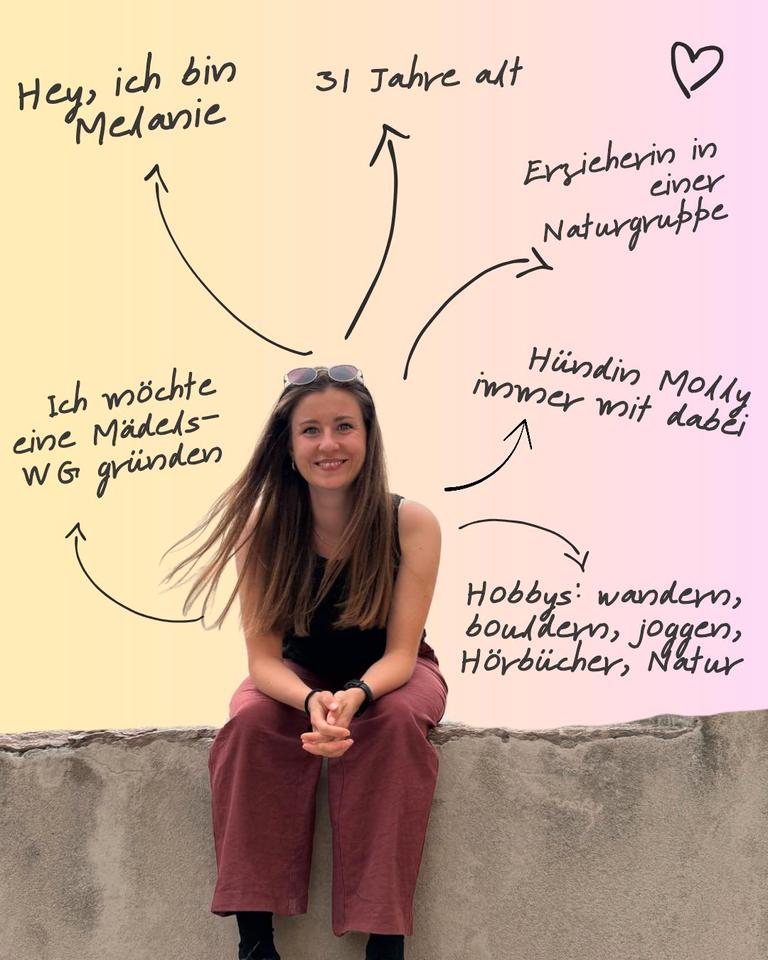 Hey, ich bin
Melanie
31 Jahre alt
Erzieherin in
einer
Naturgruppe
Hündin Molly
immer mit dabei
Ich möchte
eine Mädels-
WG gründen
Hobbys: wandern,
bouldern, joggen,
Hörbücher, Natur